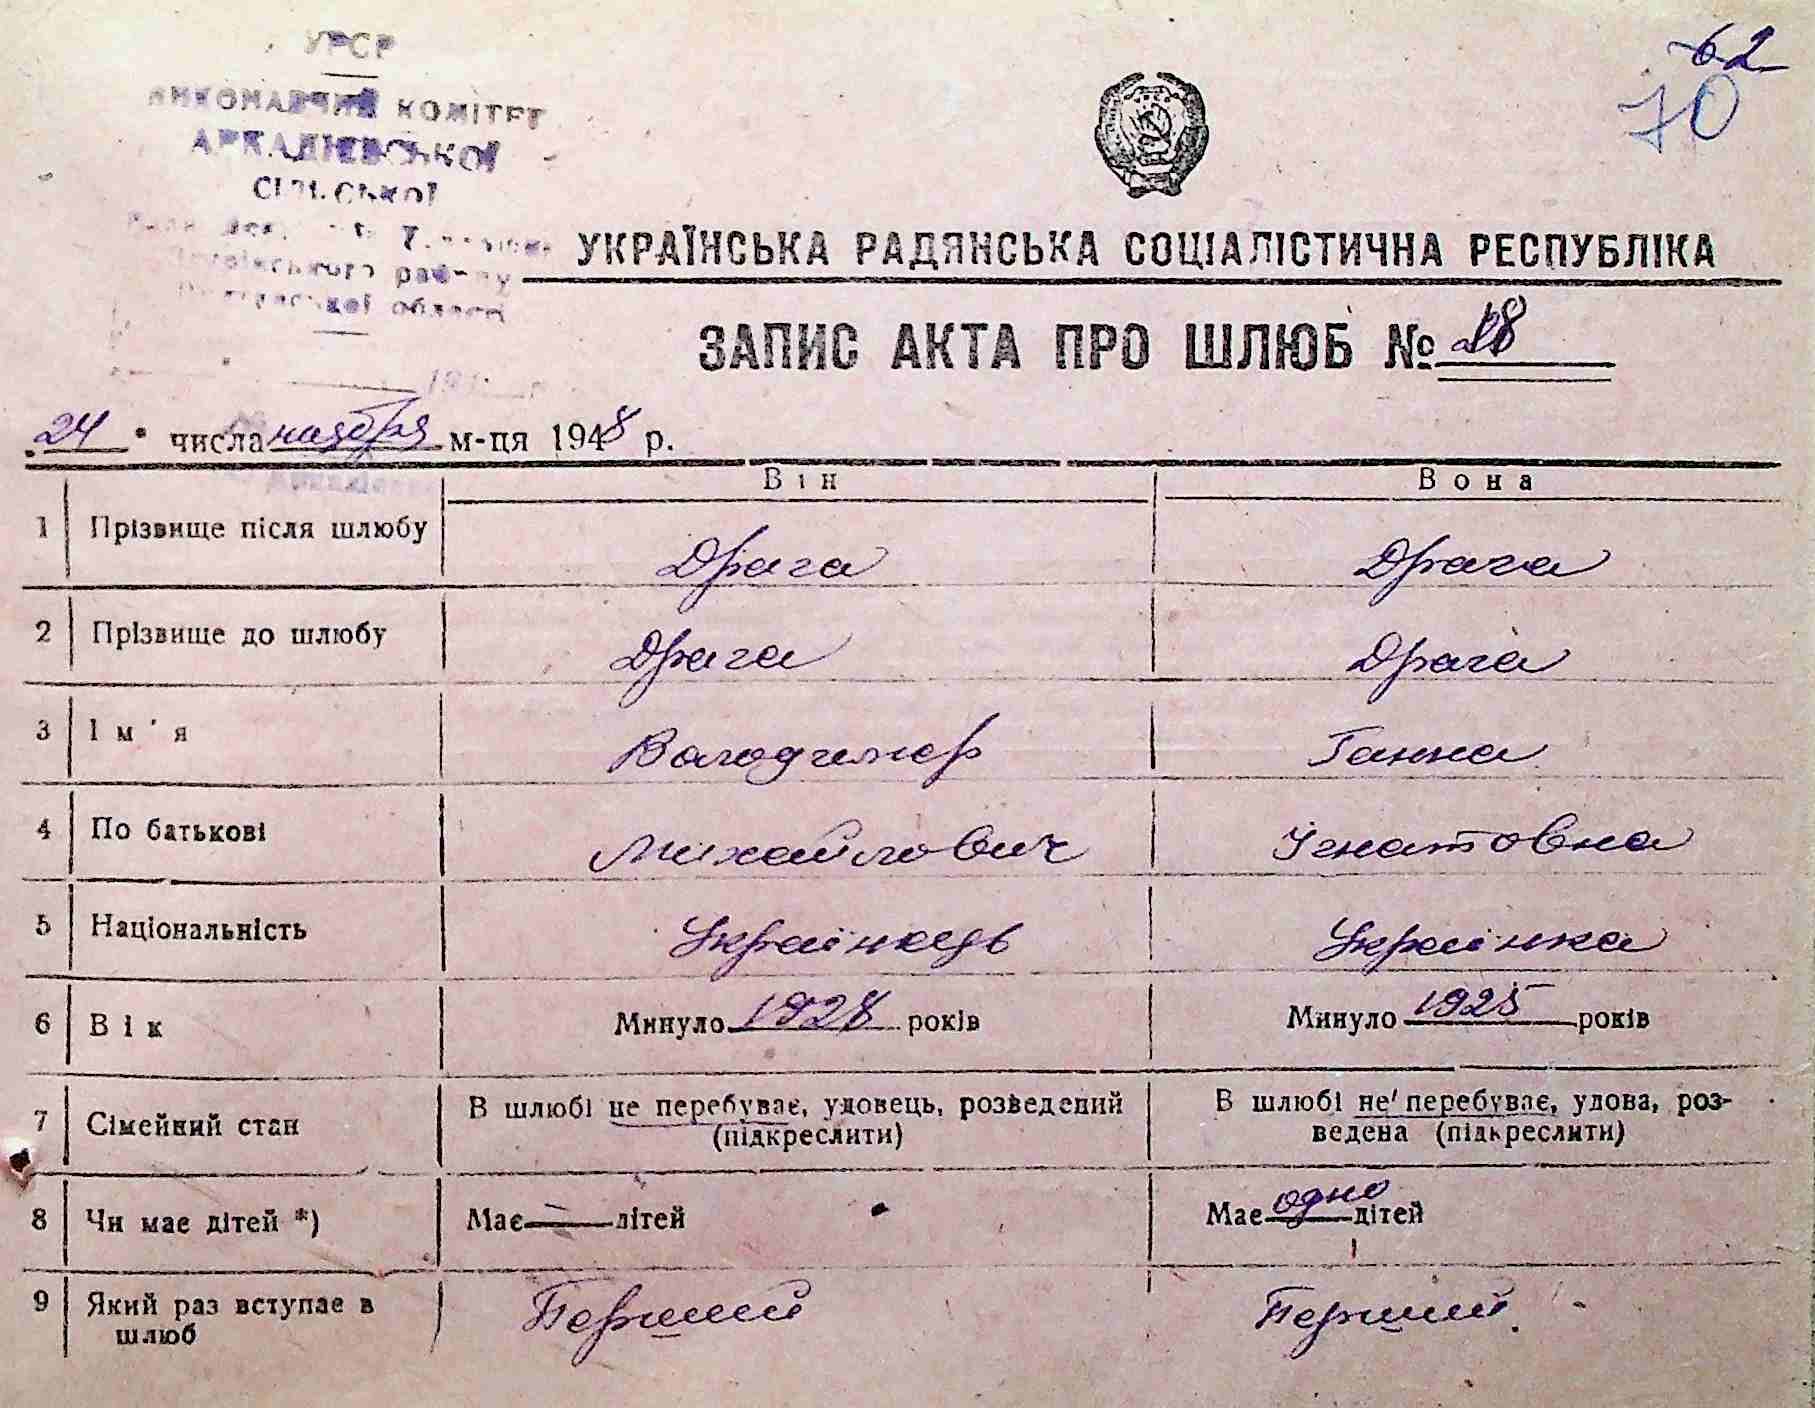 УРСР
ВИКОНАВЧИЙ КОМІТЕТ
АРКАДІЇВСЬКОЇ
СІЛЬСЬКОЇ
району
області
62
70
УКРАЇНСЬКА РАДЯНСЬКА СОЦІАЛІСТИЧНА РЕСПУБЛІКА
ЗАПИС АКТА ПРО ШЛЮБ № 28
24 числа ноября м-ця 1948 р.
Він Вона
1 Прізвище після шлюбу Драга Драга
2 Прізвище до шлюбу Драга Драга
3 Ім'я Володимер Ганна
4 По батькові Михайлович Ігнатовна
5 Національність Українець Українка
6 Вік Минуло 1928 років Минуло 1925 років
7 Сімейний стан В шлюбі не перебуває, удовець, розведений (підкреслити) В шлюбі не перебуває, удова, роз-
ведена (підкреслити)
8 Чи має дітей *) Має — дітей Має одно дітей
9 Який раз вступає в шлюб Перший Перший.